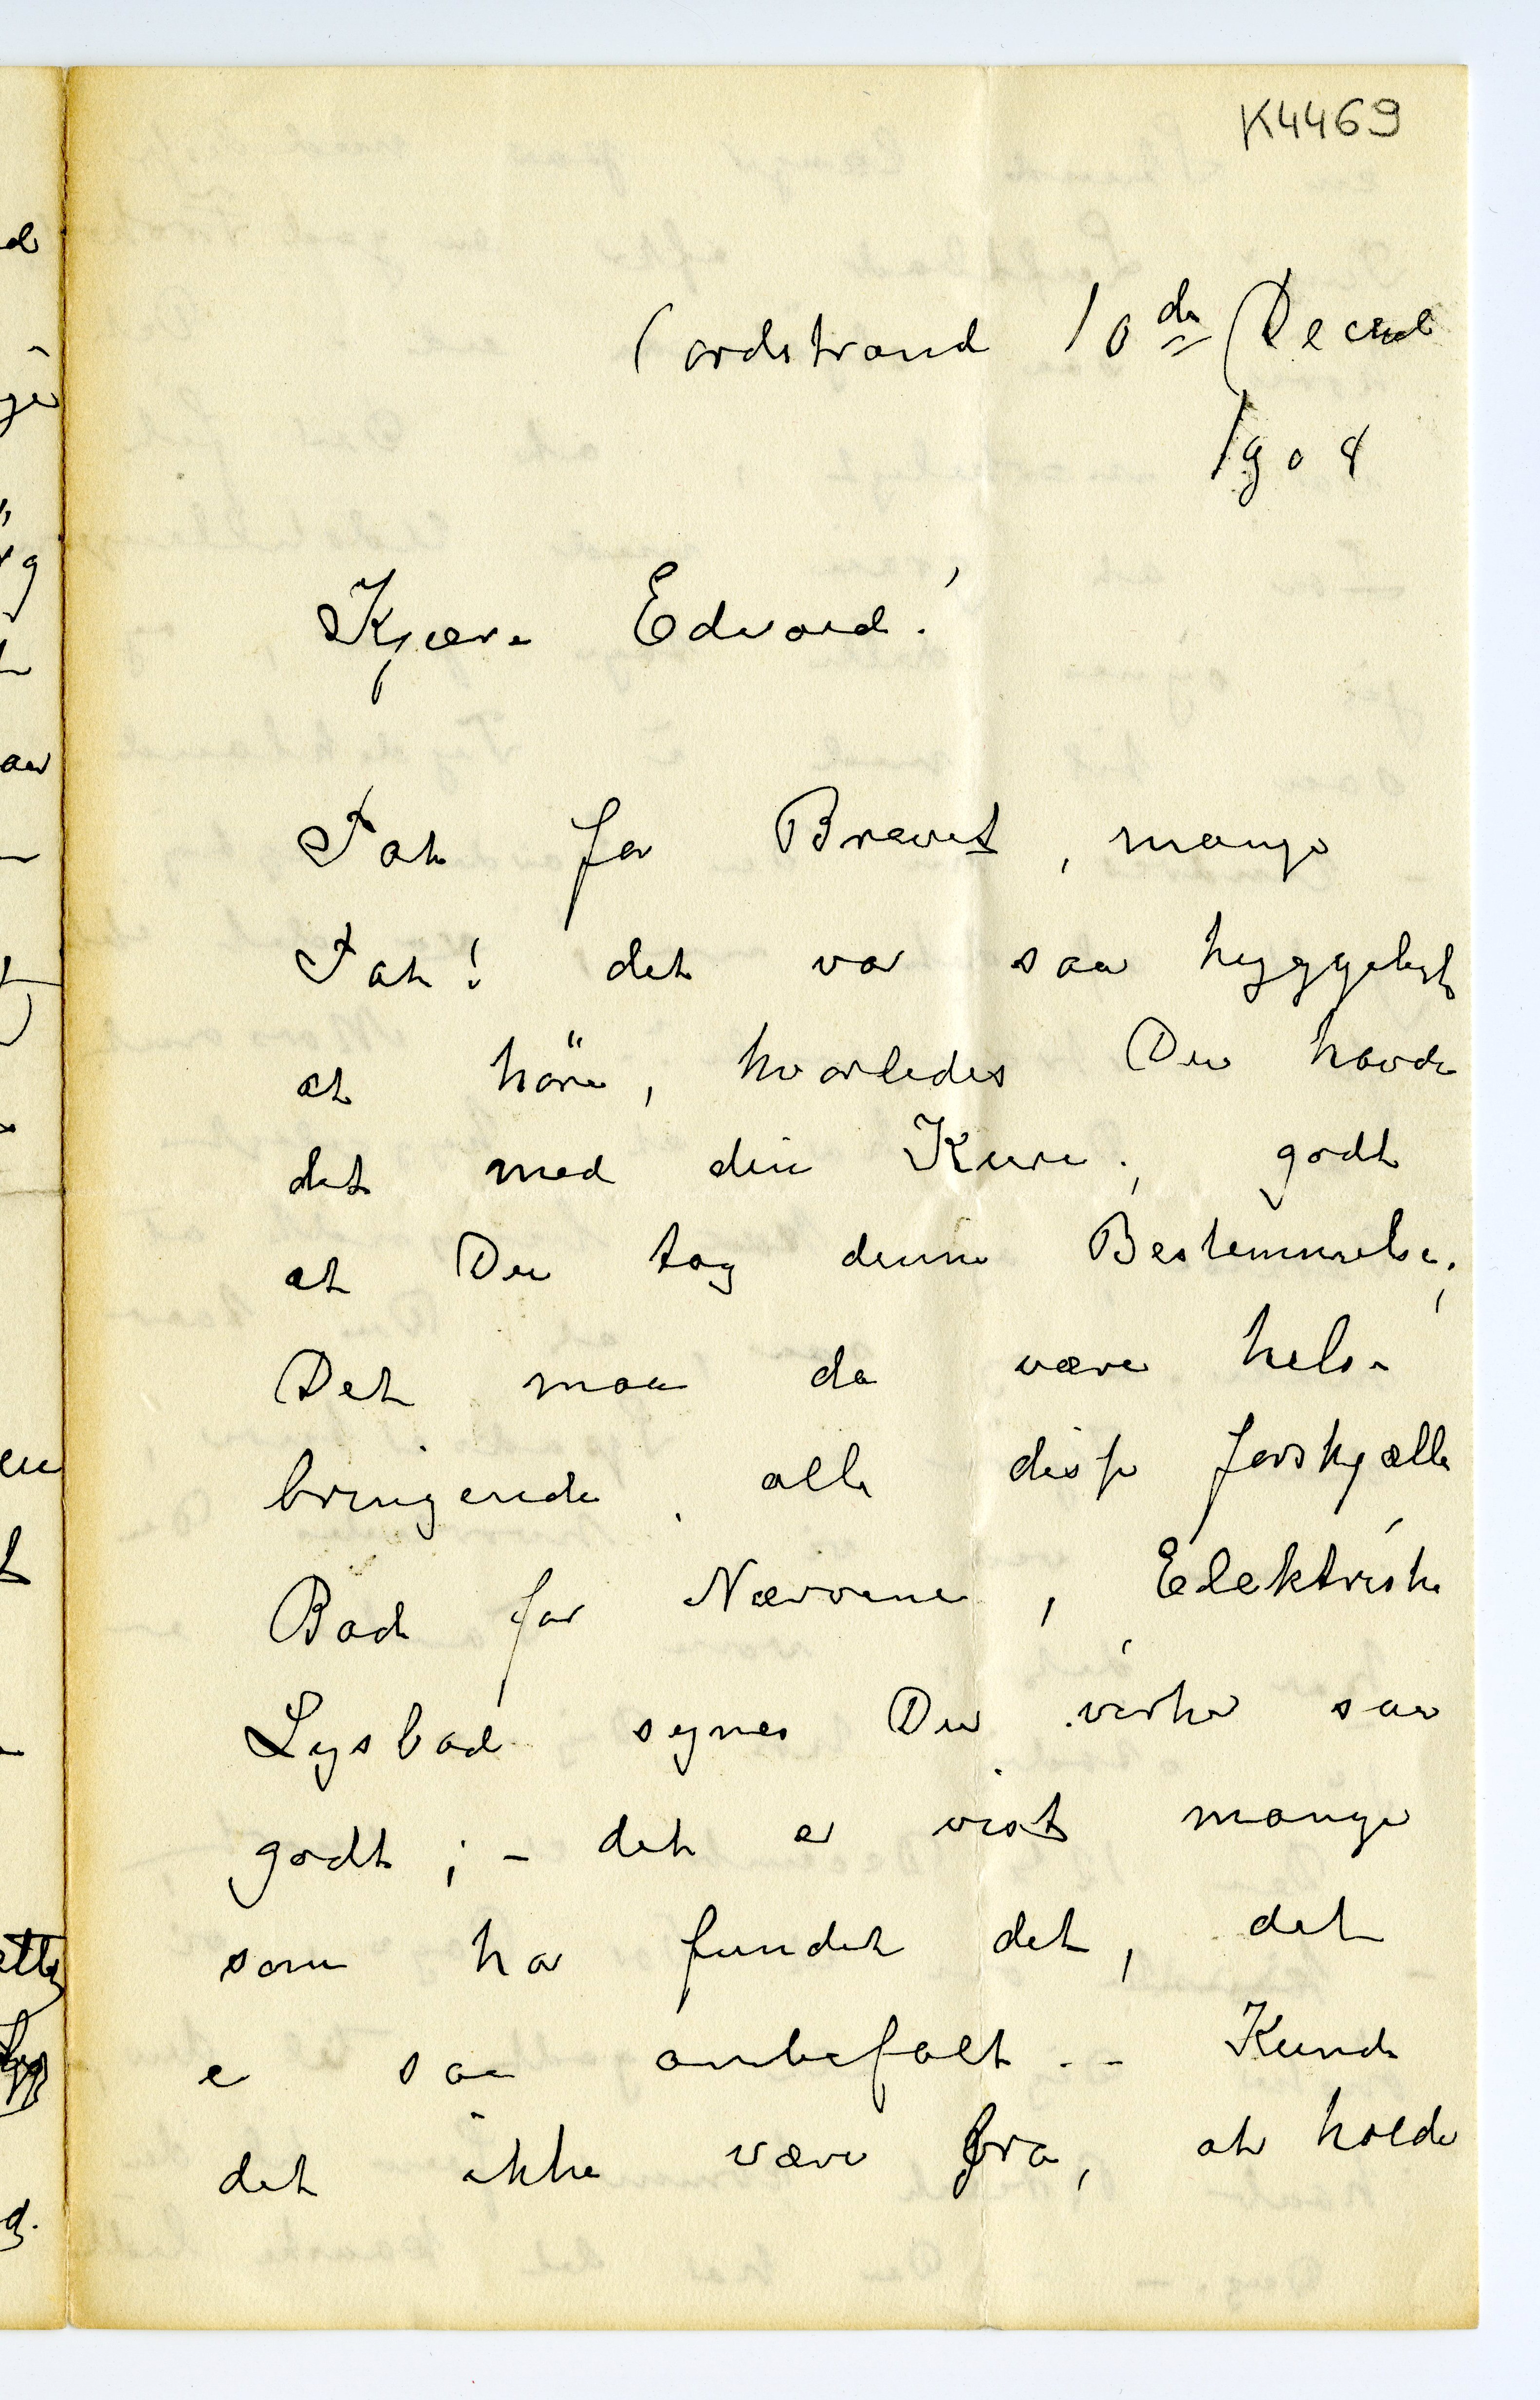 K4469
Nordstrand 10de Decemb
1908
Kjære Edvard!
Tak for Brevet, mange
Tak! det var saa hyggeligt
at höre, hvorledes Du havde
det med din Kur; godt
at Du tog denne Bestemmelse;
Det maa da være helse
bringende, alle disse forskjælle
Bad for Nerverne, Elektriske
Lysbad synes Du virker saa
godt; - det er vist mange
som har fundet det, det
er saa anbefalt. - Kunde
det ikke være bra, at holde